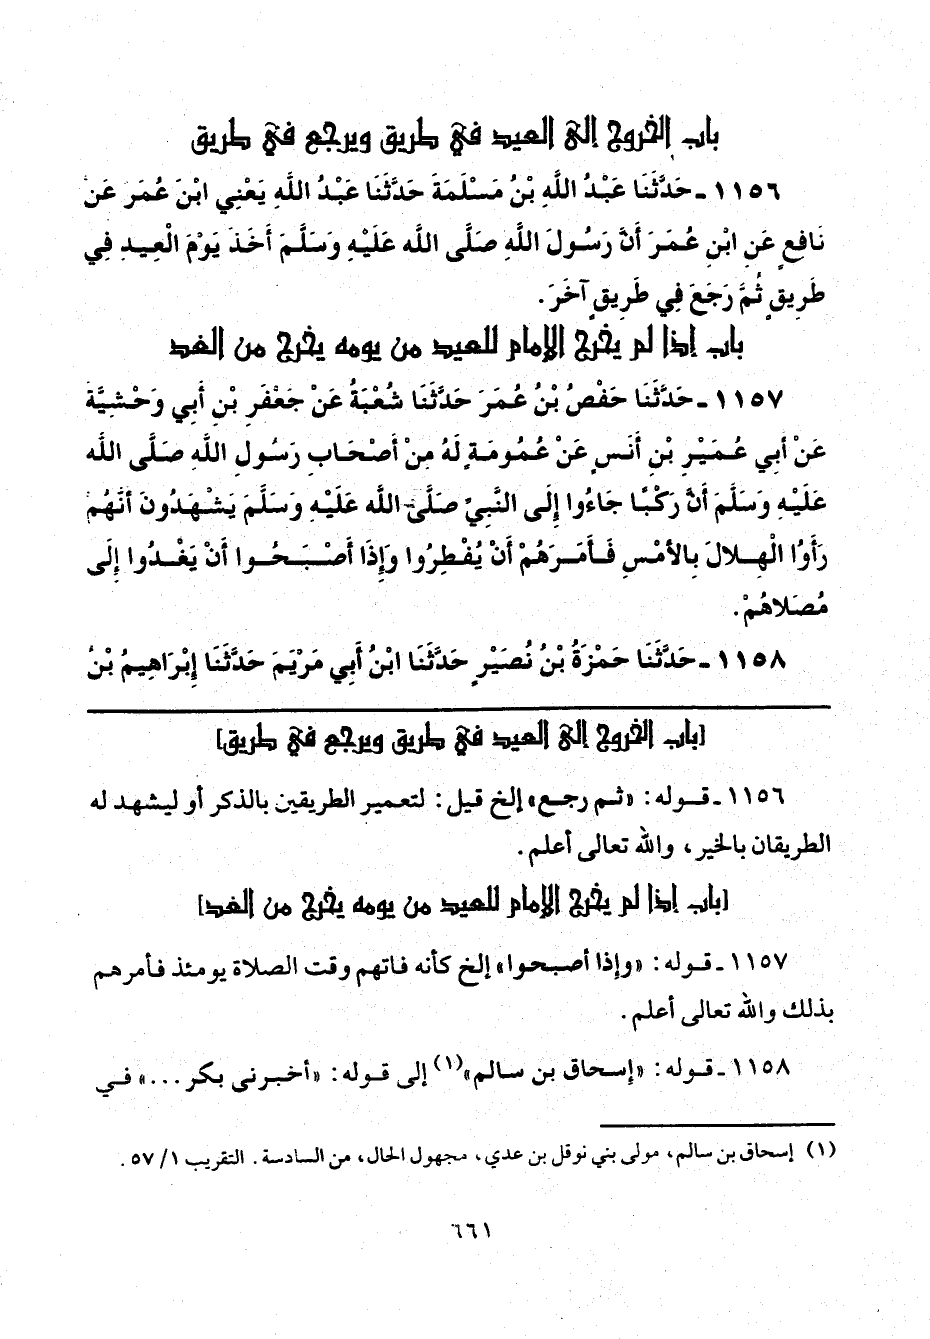 باب الخروج إلى العيد في طريق ويرجع في طريق
١١٥٦ ـ حَدَّثَنَا عَبْدُ اللَّهِ بْنُ مَسْلَمَةَ حَدَّثَنَا عَبْدُ اللَّهِ يَعْنِي ابْنَ عُمَرَ عَنْ
نَافِعٍ عَنِ ابْنِ عُمَرَ أَنَّ رَسُولَ اللَّهِ صَلَّى اللَّه عَلَيْهِ وَسَلَّمَ أَخَذَ يَوْمَ الْعِيدِ فِي
طَرِيقٍ ثُمَّ رَجَعَ فِي طَرِيقٍ آخَرَ.
باب إذا لم يخرج الإمام للعيد من يومه يخرج من الغد
١١٥٧ ـ حَدَّثَنَا حَفْصُ بْنُ عُمَرَ حَدَّثَنَا شُعْبَةُ عَنْ جَعْفَرِ بْنِ أَبِي وَحْشِيَّةَ
عَنْ أَبِي عُمَيْرِ بْنِ أَنَسٍ عَنْ عُمُومَةٍ لَهُ مِنْ أَصْحَابِ رَسُولِ اللَّهِ صَلَّى اللَّه
عَلَيْهِ وَسَلَّمَ أَنَّ رَكْبًا جَاءُوا إِلَى النَّبِيِّ صَلَّى اللَّه عَلَيْهِ وَسَلَّمَ يَشْهَدُونَ أَنَّهُمْ
رَأَوُا الْهِلالَ بِالأَمْسِ فَأَمَرَهُمْ أَنْ يُفْطِرُوا وَإِذَا أَصْبَحُوا أَنْ يَغْدُوا إِلَى
مُصَلاهُمْ.
١١٥٨ ـ حَدَّثَنَا حَمْزَةُ بْنُ نُصَيْرٍ حَدَّثَنَا ابْنُ أَبِي مَرْيَمَ حَدَّثَنَا إِبْرَاهِيمُ بْنُ
[باب الخروج إلى العيد في طريق ويرجع في طريق]
١١٥٦ ـ قوله: «ثم رجع» إلخ قيل: لتعمير الطريقين بالذكر أو ليشهد له
الطريقان بالخير، والله تعالى أعلم.
[باب إذا لم يخرج الإمام للعيد من يومه يخرج من الغد]
١١٥٧ ـ قوله: «وإذا أصبحوا» إلخ كأنه فاتهم وقت الصلاة يومئذ فأمرهم
بذلك والله تعالى أعلم.
١١٥٨ ـ قوله: «إسحاق بن سالم»(١) إلى قوله: «أخبرني بكر ...» في
(١) إسحاق بن سالم، مولى بني نوفل بن عدي، مجهول الحال، من السادسة. التقريب ١/ ٥٧.
٦٦١